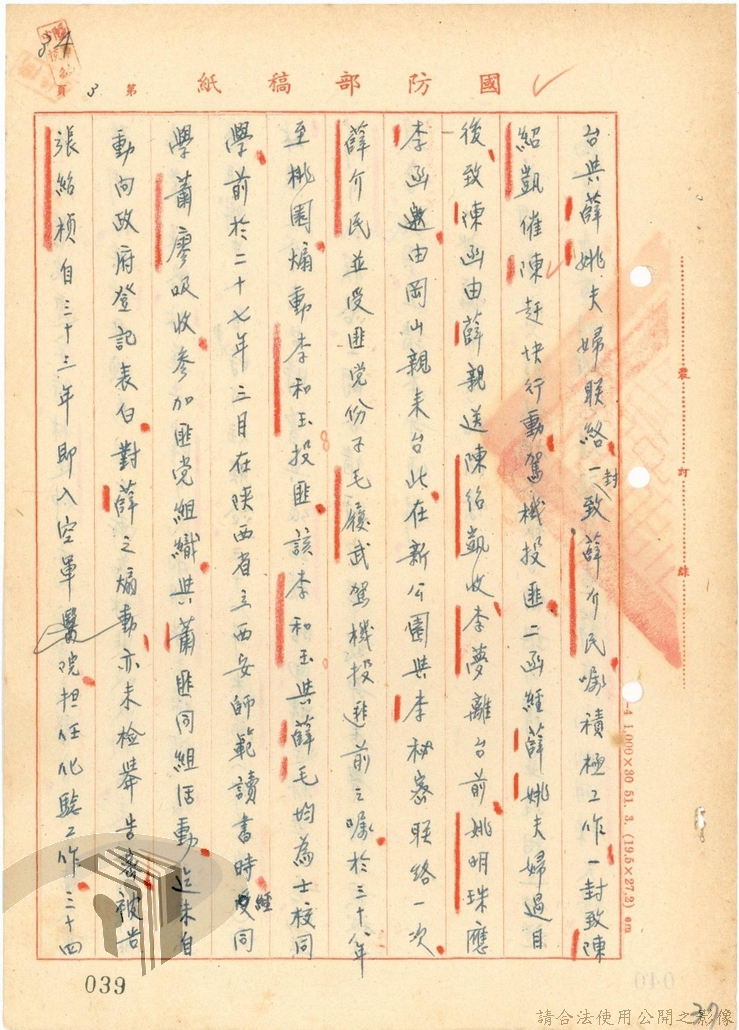 國防部稿紙
第3頁
34
台共薛姚夫婦联絡一封致薛介民囑積極工作一封致陳
紹凱催陳赶快行動駕机投匪二函經薛姚夫婦過目
後致陳函由薛親送陳紹凱收李夢離台前姚明珠應
李函邀由岡山親來台北在新公園與李秘密联絡一次
薛介民並受匪党份子毛履武駕機投匪前之囑於三十八年
至桃園煽動李和玉投匪該李和玉與薛毛均為士校同
學前於二十七年三月在陕西省立西安師範讀書時經同
學蕭廖吸收參加匪党組織與蕭匪同組活動迄未自
動向政府登記表白對薛之煽動亦未检舉告密被告
張給楨自三十三年即入空軍醫院担任化驗工作三十四
裝訂線
-4 1,000×30 51. 3. (19.5×27.2) cm
039
040
37
請合法使用公開之影像